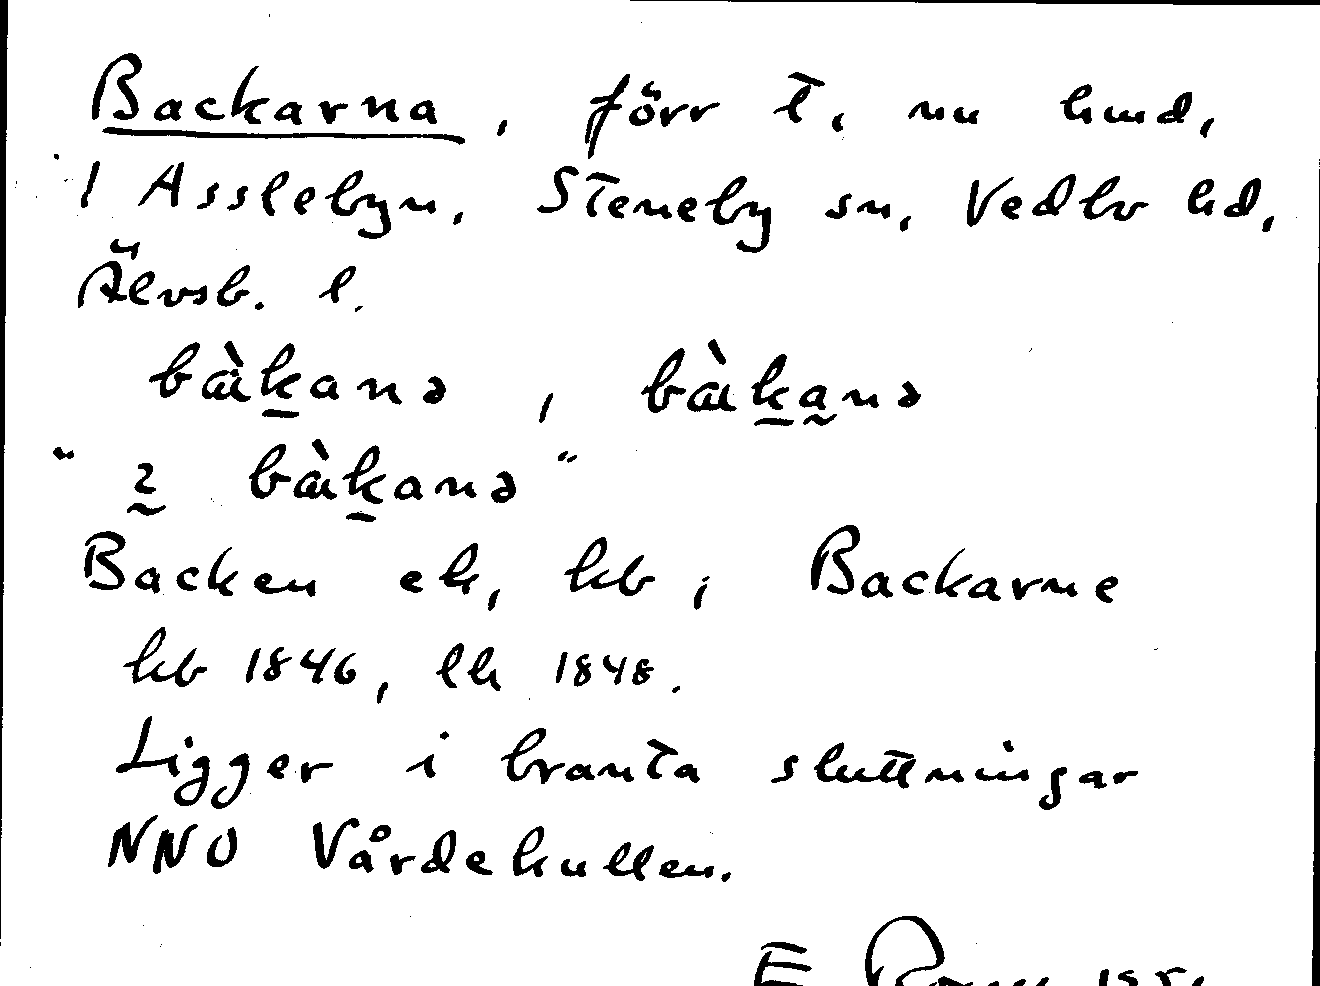 Backarna, förr t, nu hmd,
1 Asslebyn, Steneby sn, Vedbo hd,
Älvsb. l.
bàkanə, bàkanə
" 2 bàkanə "
Backen ek, kb; Backarne
kb 1846, lk 1848.
Ligger i branta sluttningar
NNO Vårdekullen.
E